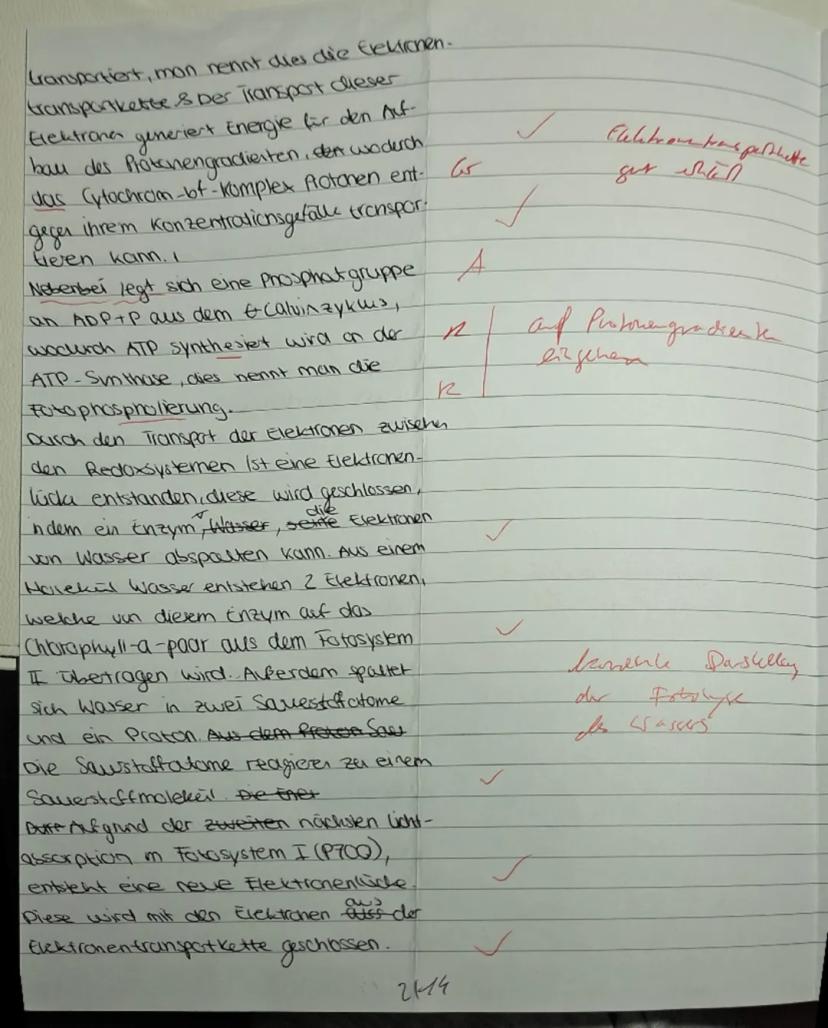 transportiert, man nennt dies die Elektronen-
transportkette. Der Transport dieser
Elektronen generiert Energie für den Auf-
bau des Protonengradienten, den wodurch
das Cytochrom-bf-Komplex Protonen ent-
gegen ihrem Konzentrationsgefälle transpor-
tieren kann.
Elektronentransportkette
gut erklärt
Gr
A
Nebenbei legt sich eine Phosphatgruppe
an ADP+P aus dem Calvinzyklus,
wodurch ATP synthesiert wird an der
ATP-Synthase, dies nennt man die
Fotophospholierung.
R
R
auf Protonengradienten
eingehen
Durch den Transport der Elektronen zwischen
den Redoxsystemen ist eine Elektronen-
lücke entstanden, diese wird geschlossen,
indem ein Enzym, Wasser, seine die Elektronen
von Wasser abspalten kann. Aus einem
Molekül Wasser entstehen 2 Elektronen,
welche von diesem Enzym auf das
Chlorophyll-a-paar aus dem Fotosystem
II übertragen wird. Außerdem spaltet
sich Wasser in zwei Sauerstoffatome
und ein Proton. Aus dem Proton Sau
Die Saustoffatome reagieren zu einem
Sauerstoffmolekül. Die
Aufgrund der zweiten nächsten Licht-
absorption im Fotosystem I (P700),
entsteht eine neue Elektronenlücke.
Diese wird mit den Elektronen aus der
Elektronentransportkette geschlossen.
Darstellung
der Fotolyse
des Wassers
2/14